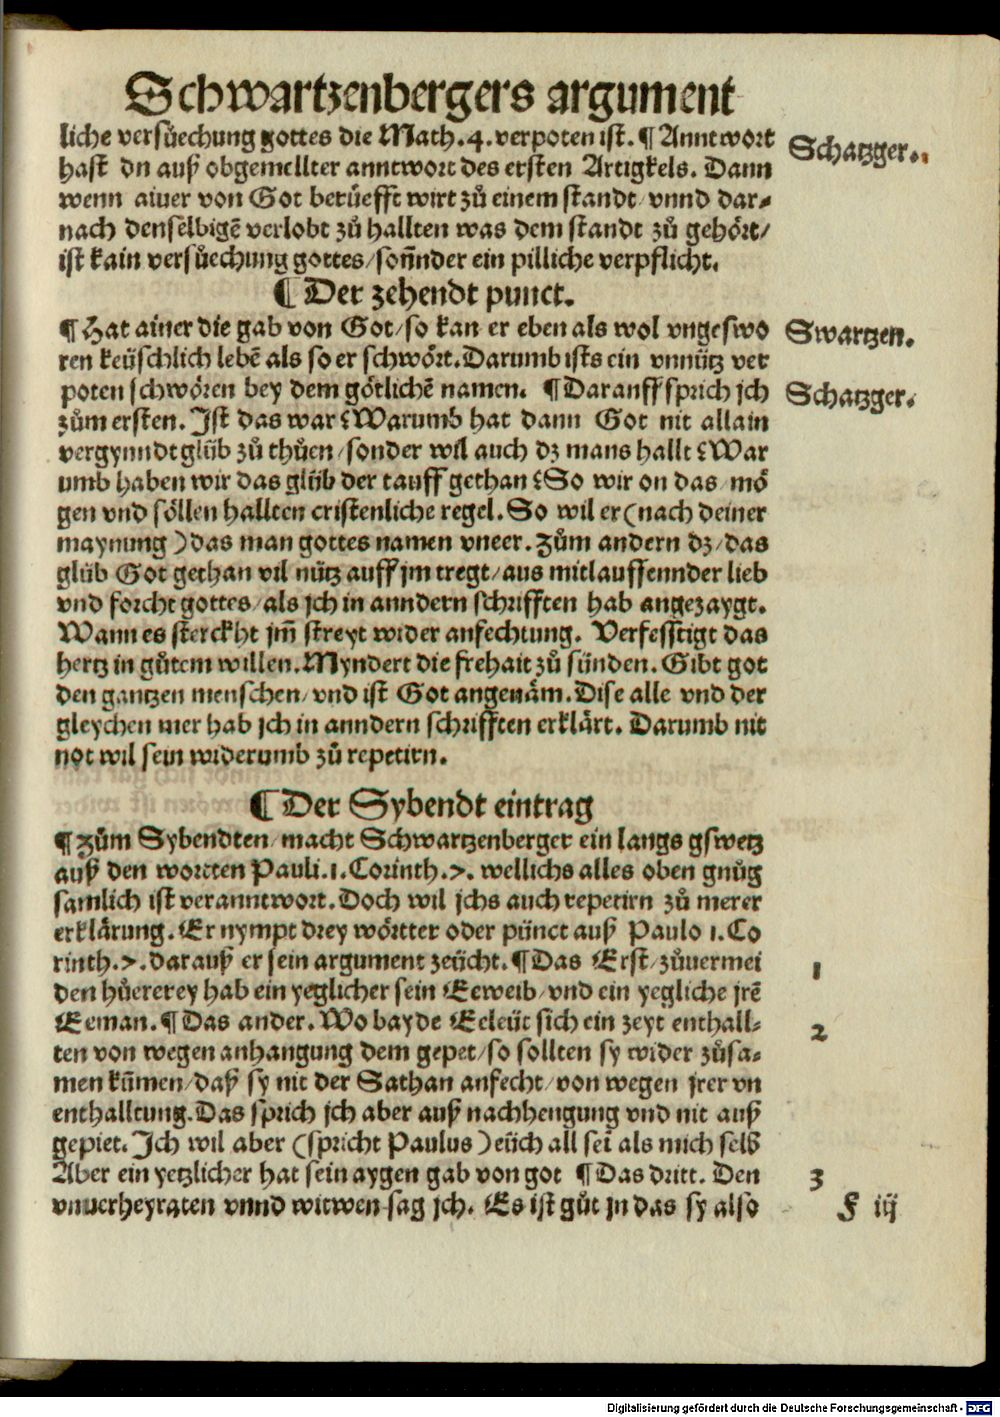 Schwartzenbergers argument
liche versůechung gottes die Math.4.verpoten ist.¶Anntwort
Schatzger.
hast dn auß obgemellter anntwort des ersten Artigkels. Dann
wenn ainer von Got berůefft wirt zů einem standt/vnnd dar⸗
nach denselbigē verlobt zů hallten was dem standt zů gehört/
ist kain versůechung gottes/sonnder ein pilliche verpflicht.
¶Der zehendt punct.
¶Hat ainer die gab von Got/so kan er eben als wol vngeswo
Swartzen.
ren keüschlich lebē als so er schwört.Darumb ists ein vnnütz ver
poten schwören bey dem götlichē namen. ¶Darauff sprich jch
Schatzger.
zům ersten. Ist das war?Warumb hat dann Got nit allain
vergynndt glüb zů thůen/sonder wil auch dz mans hallt?War
umb haben wir das glüb der tauff gethan?So wir on das mö
gen vnd söllen hallten cristenliche regel.So wil er(nach deiner
maynung)das man gottes namen vneer.Zům andern dz/das
glüb Got gethan vil nütz auff jm tregt/aus mitlauffennder lieb
vnd forcht gottes/als jch in anndern schrifften hab angezaygt.
Wann es sterckht jm̄ streyt wider anfechtung. Verfesstigt das
hertz in gůtem willen.Myndert die frehait zů sünden.Gibt got
den gantzen menschen/vnd ist Got angenäm.Dise alle vnd der
gleychen mer hab jch in anndern schrifften erklärt. Darumb nit
not wil sein widerumb zů repetirn.
¶Der Sybendt eintrag
¶Zům Sybendten/macht Schwartzenberger ein langs gswetz
auß den wortten Pauli.1.Corinth.7. wellichs alles oben gnůg
samlich ist veranntwort.Doch wil jchs auch repetirn zů merer
erklärung.Er nympt drey wörtter oder pünct auß Paulo 1.Co
rinth.7.darauß er sein argument zeücht.¶Das Erst/zůuermei
1
den hůererey hab ein yeglicher sein Eeweib/vnd ein yegliche jrē
Eeman.¶Das ander.Wo bayde Eeleüt sich ein zeyt enthall⸗
2
ten von wegen anhangung dem gepet/so sollten sy wider zůsa⸗
men kūmen/daß sy nit der Sathan anfecht/von wegen jrer vn
enthalltung.Das sprich jch aber auß nachhengung vnd nit auß
gepiet.Ich wil aber(spricht Paulus)eüch all sei als mich selb
Aber ein yetzlicher hat sein aygen gab von got ¶Das dritt. Den
3
vnuerheyraten vnnd witwen sag jch. Es ist gůt jn das sy also
F iij
Digitalisierung gefördert durch die Deutsche Forschungsgemeinschaft - DFG